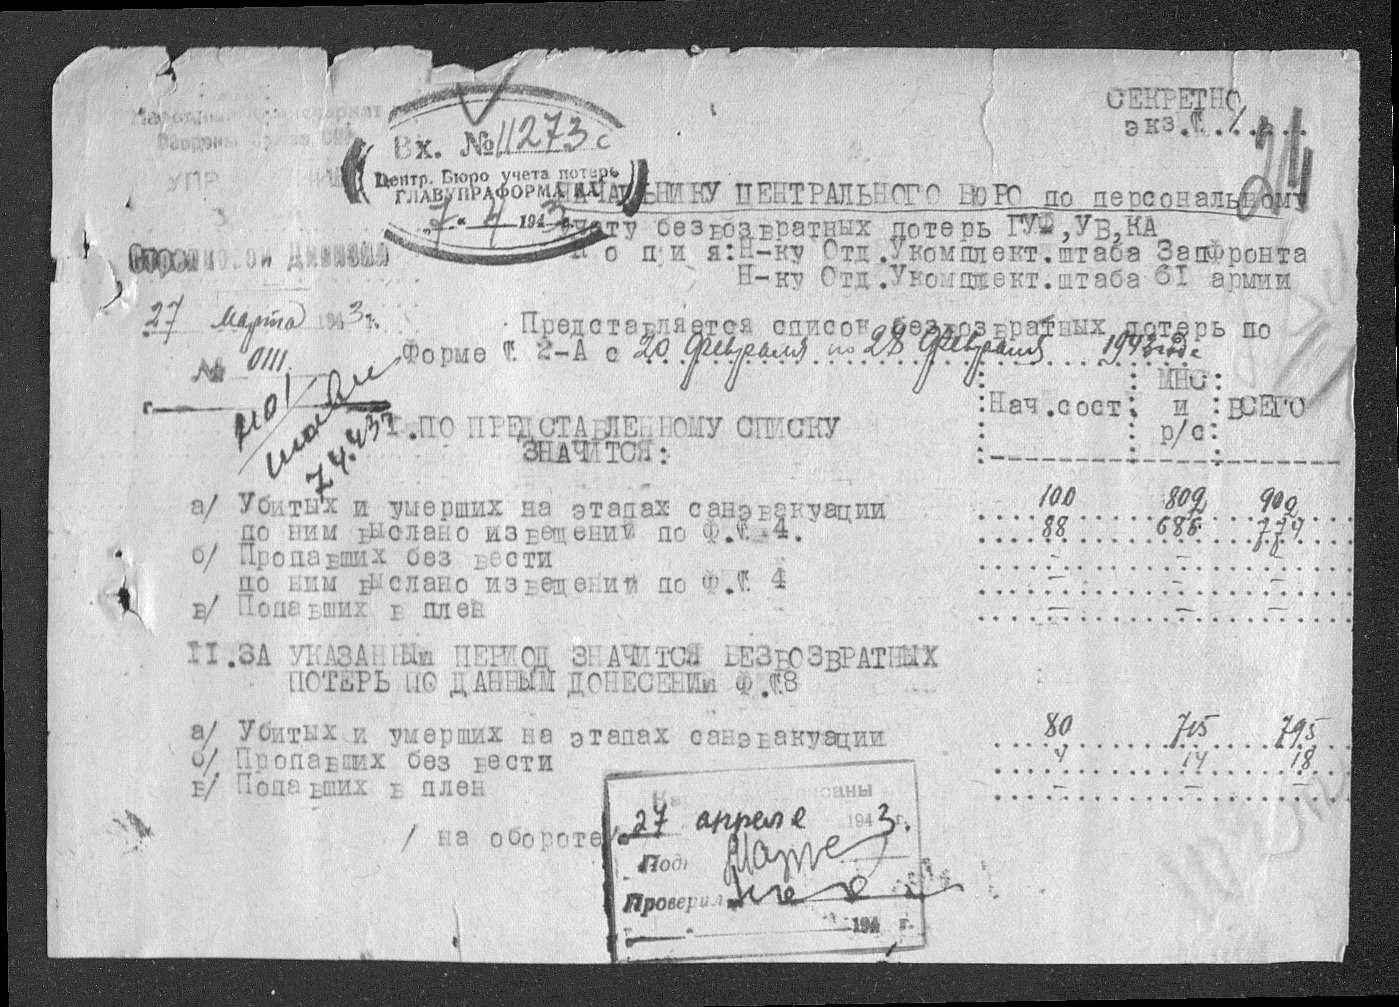 СЕКРЕТНО
экз.№ 1
214
Вх. № 11273 с
Центр. Бюро учета потерь
ГЛАВУПРАФОРМА КА
„7“ 4 1943 г.
НАЧАЛЬНИКУ ЦЕНТРАЛЬНОГО БЮРО по персональному
учету безвозвратных потерь ГУФ,УВ,КА
К о п и я:Н-ку Отд.Укомплект.штаба Запфронта
Н-ку Отд.Укомплект.штаба 61 армии
УПР
27 Марта 1943 г.
№ 0111
7.4.43
Представляется список безвозвратных потерь по
Форме № 2-А с 20 февраля по 28 февраля 1943 года
Нач.сост. МНС и р/с ВСЕГО
I.ПО ПРЕДСТАВЛЕННОМУ СПИСКУ
ЗНАЧИТСЯ:
а/ Убитых и умерших на этапах санэвакуации 100 809 909
по ним выслано извещений по Ф.№ 4. 88 686 774
б/ Пропавших без вести - - -
по ним выслано извещений по Ф.№ 4 - - -
в/ Попавших в плен - - -
II.ЗА УКАЗАННЫЙ ПЕРИОД ЗНАЧИТСЯ БЕЗВОЗВРАТНЫХ
ПОТЕРЬ ПО ДАННЫМ ДОНЕСЕНИЙ Ф.№8
а/ Убитых и умерших на этапах санэвакуации 80 715 795
б/ Пропавших без вести 4 14 18
в/ Попавших в плен - - -
/ на обороте/
27 апреля 1943 г.
Проверил
194 г.